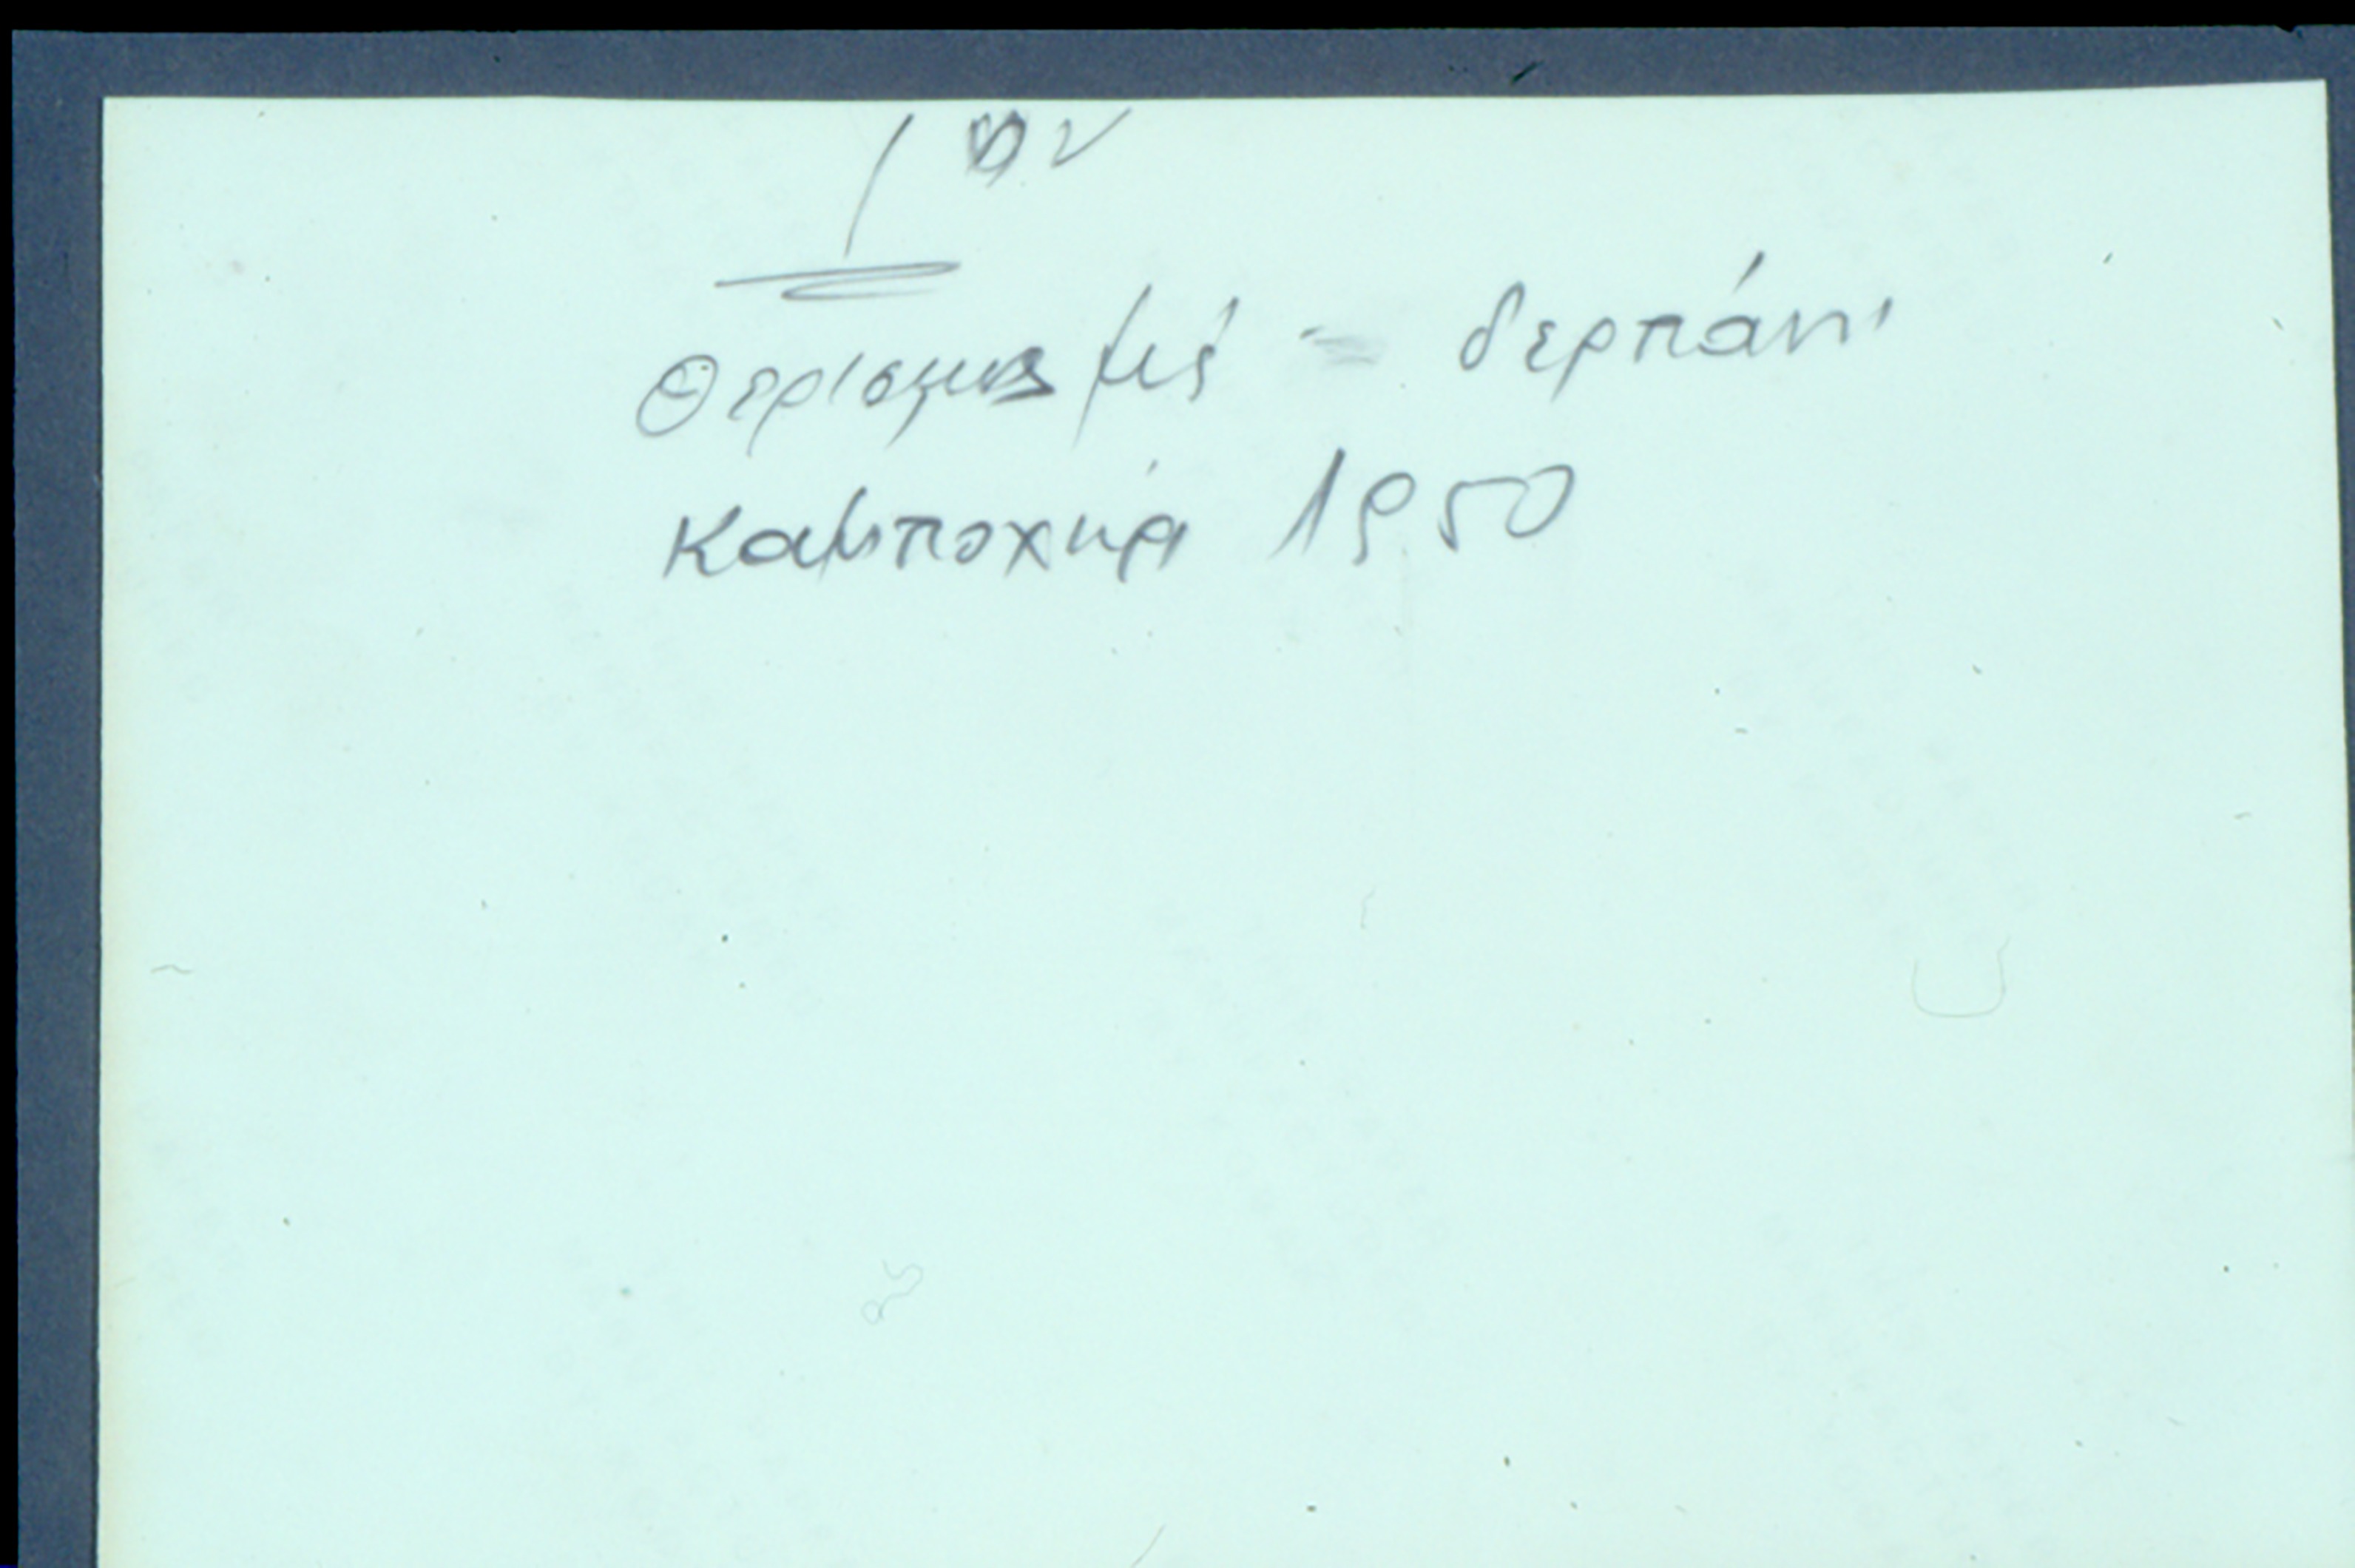 Θερισμος μέ - δρεπάνι
Καμποχώρι 1950